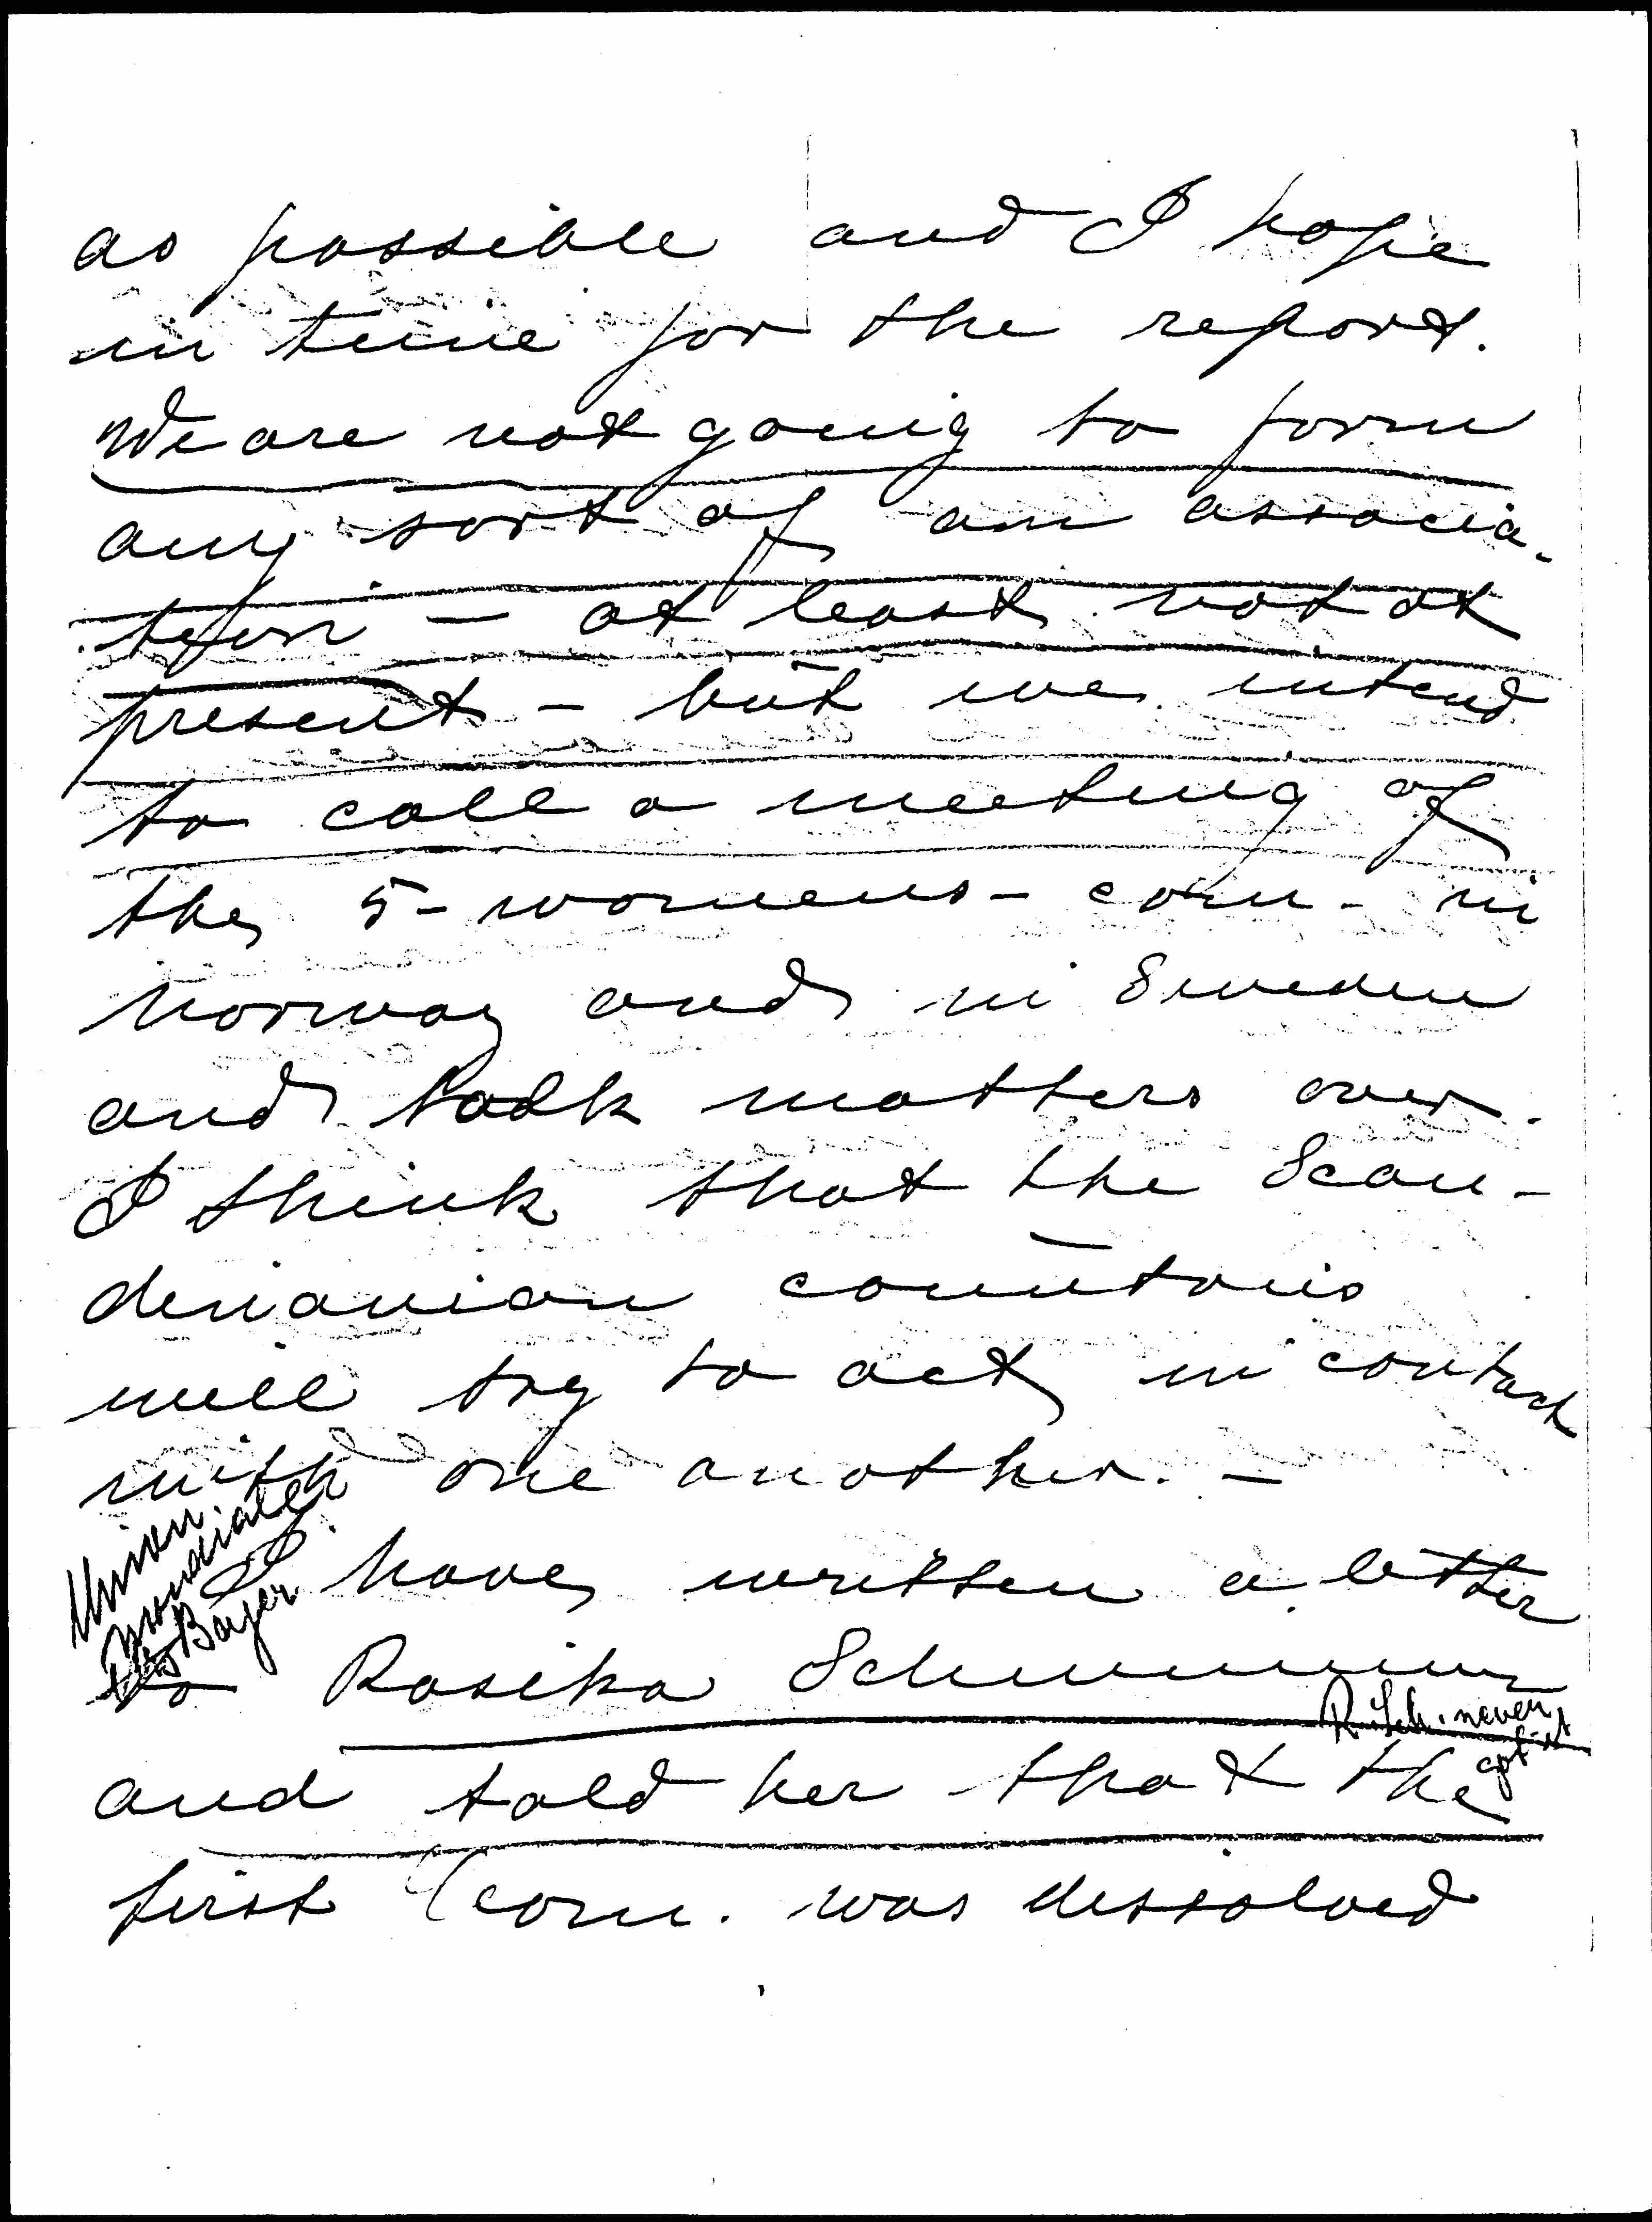 as possible and I hope
in time for the report.
We are not going to form
any sort of an associa-
tion - at least not at
present - but we intend
to call a meeting of
the 5-womens-com- in
Norway and in Sweden
and talk matters over.
I think that the Scan-
dinavian countris
will try to act in contact
with one another. -
Union
mondiale
Bayer
I have written a letter
to Rosika Schwimmer
R. Sch. never
got it
and told her that the
first Com. was dissolved